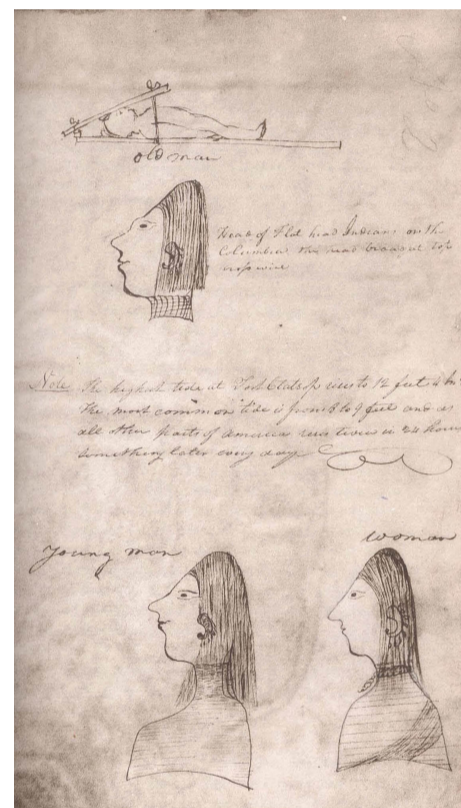 old man
Heads of Flat head Indians on the
Columbia the head broad at top
crosswise
Note The highest tide at Fort Clatsop rises to 12 feet 4 In
The most common tide is from 8 to 9 feet and as
all other parts of America rises twice in 24 hours
something later every day
young man
woman